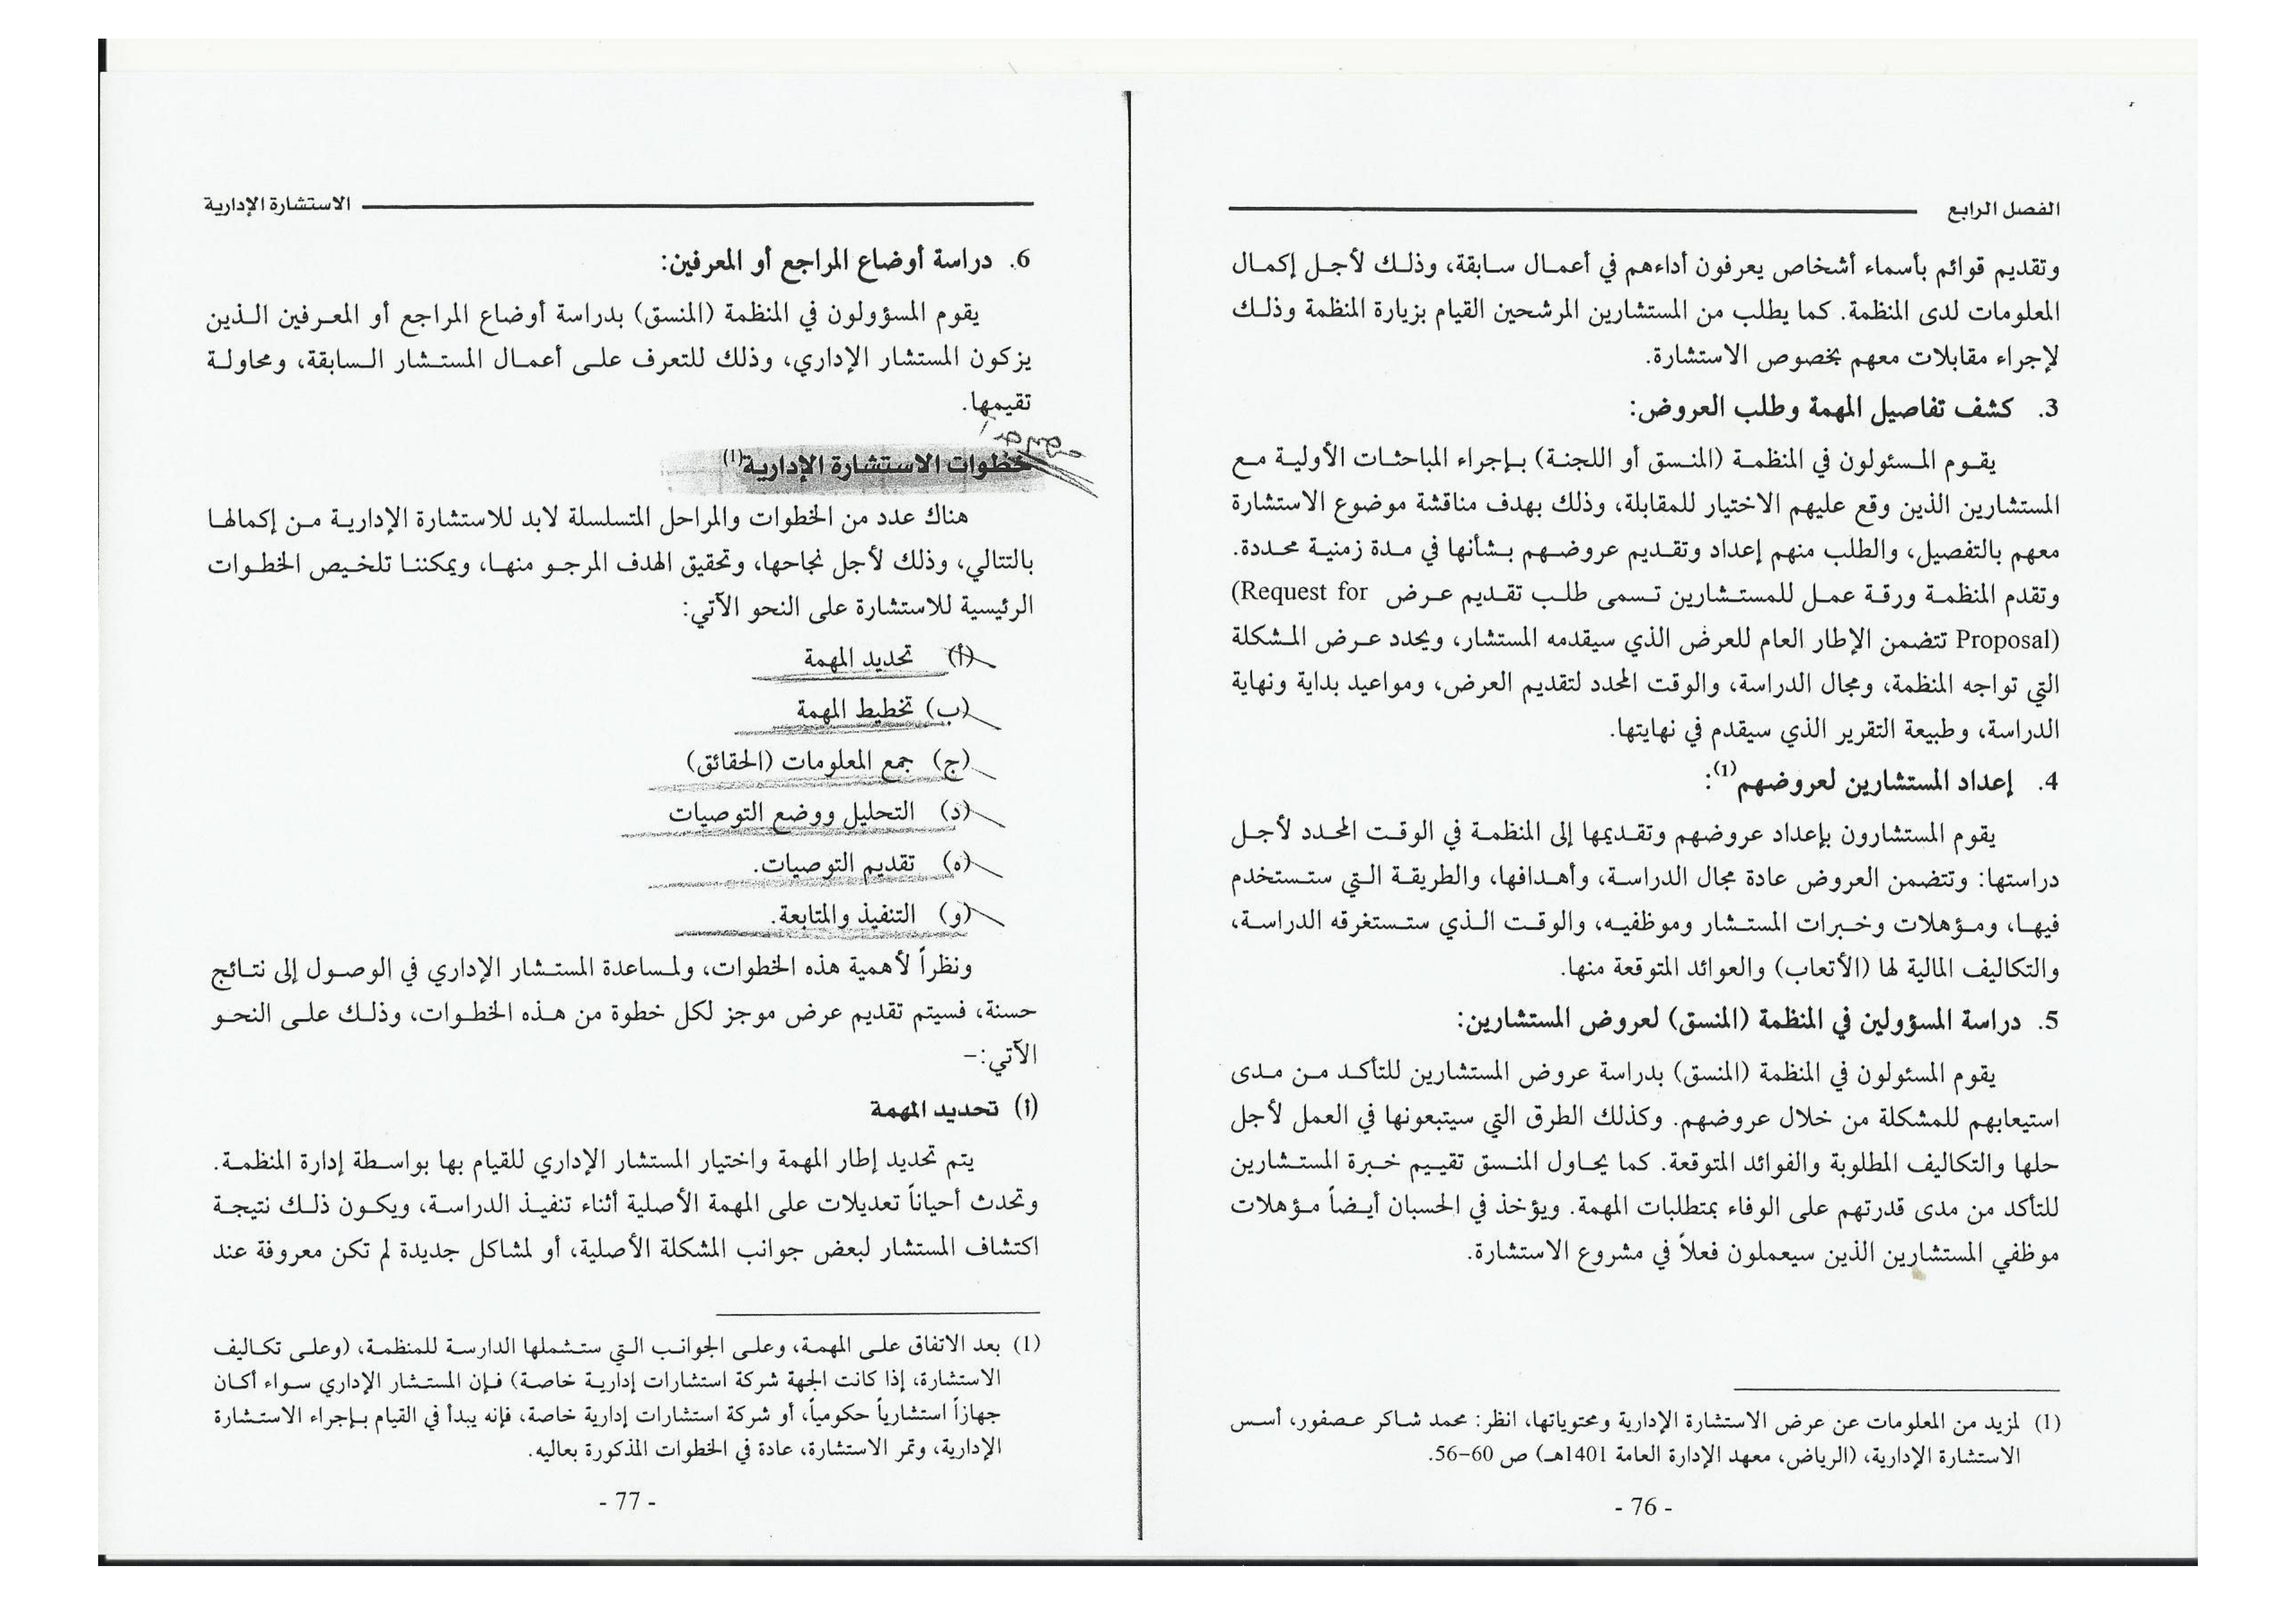 الفصل الرابع
وتقديم قوائم بأسماء أشخاص يعرفون أداءهم في أعمال سابقة، وذلك لأجل إكمال
المعلومات لدى المنظمة. كما يطلب من المستشارين المرشحين القيام بزيارة المنظمة وذلك
لإجراء مقابلات معهم بخصوص الاستشارة.
3. كشف تفاصيل المهمة وطلب العروض:
يقوم المسئولون في المنظمة (المنسق أو اللجنة) بإجراء المباحثات الأولية مع
المستشارين الذين وقع عليهم الاختيار للمقابلة، وذلك بهدف مناقشة موضوع الاستشارة
معهم بالتفصيل، والطلب منهم إعداد وتقديم عروضهم بشأنها في مدة زمنية محددة.
وتقدم المنظمة ورقة عمل للمستشارين تسمى طلب تقديم عرض (Request for
Proposal) تتضمن الإطار العام للعرض الذي سيقدمه المستشار، ويحدد عرض المشكلة
التي تواجه المنظمة، ومجال الدراسة، والوقت المحدد لتقديم العرض، ومواعيد بداية ونهاية
الدراسة، وطبيعة التقرير الذي سيقدم في نهايتها.
4. إعداد المستشارين لعروضهم(1):
يقوم المستشارون بإعداد عروضهم وتقديمها إلى المنظمة في الوقت المحدد لأجل
دراستها: وتتضمن العروض عادة مجال الدراسة، وأهدافها، والطريقة التي ستستخدم
فيها، ومؤهلات وخبرات المستشار وموظفيه، والوقت الذي ستستغرقه الدراسة،
والتكاليف المالية لها (الأتعاب) والعوائد المتوقعة منها.
5. دراسة المسؤولين في المنظمة (المنسق) لعروض المستشارين:
يقوم المسئولون في المنظمة (المنسق) بدراسة عروض المستشارين للتأكد من مدى
استيعابهم للمشكلة من خلال عروضهم. وكذلك الطرق التي سيتبعونها في العمل لأجل
حلها والتكاليف المطلوبة والفوائد المتوقعة. كما يحاول المنسق تقييم خبرة المستشارين
للتأكد من مدى قدرتهم على الوفاء بمتطلبات المهمة. ويؤخذ في الحسبان أيضاً مؤهلات
موظفي المستشارين الذين سيعملون فعلاً في مشروع الاستشارة.
(1) لمزيد من المعلومات عن عرض الاستشارة الإدارية ومحتوياتها، انظر: محمد شاكر عصفور، أسس
الاستشارة الإدارية، (الرياض، معهد الإدارة العامة 1401هـ) ص 60-56.
- 76 -
الاستشارة الإدارية
6. دراسة أوضاع المراجع أو المعرفين:
يقوم المسؤولون في المنظمة (المنسق) بدراسة أوضاع المراجع أو المعرفين الذين
يزكون المستشار الإداري، وذلك للتعرف على أعمال المستشار السابقة، ومحاولة
تقيمها.
خطوات الاستشارة الإدارية(1)
هناك عدد من الخطوات والمراحل المتسلسلة لابد للاستشارة الإدارية من إكمالها
بالتتالي، وذلك لأجل نجاحها، وتحقيق الهدف المرجو منها، ويمكننا تلخيص الخطوات
الرئيسية للاستشارة على النحو الآتي:
(أ) تحديد المهمة
(ب) تخطيط المهمة
(ج) جمع المعلومات (الحقائق)
(د) التحليل ووضع التوصيات
(ه) تقديم التوصيات.
(و) التنفيذ والمتابعة.
ونظراً لأهمية هذه الخطوات، ولمساعدة المستشار الإداري في الوصول إلى نتائج
حسنة، فسيتم تقديم عرض موجز لكل خطوة من هذه الخطوات، وذلك على النحو
الآتي:–
(أ) تحديد المهمة
يتم تحديد إطار المهمة واختيار المستشار الإداري للقيام بها بواسطة إدارة المنظمة.
وتحدث أحياناً تعديلات على المهمة الأصلية أثناء تنفيذ الدراسة، ويكون ذلك نتيجة
اكتشاف المستشار لبعض جوانب المشكلة الأصلية، أو لمشاكل جديدة لم تكن معروفة عند
(1) بعد الاتفاق على المهمة، وعلى الجوانب التي ستشملها الدارسة للمنظمة، (وعلى تكاليف
الاستشارة، إذا كانت الجهة شركة استشارات إدارية خاصة) فإن المستشار الإداري سواء أكان
جهازاً استشارياً حكومياً، أو شركة استشارات إدارية خاصة، فإنه يبدأ في القيام بإجراء الاستشارة
الإدارية، وتمر الاستشارة، عادة في الخطوات المذكورة بعاليه.
- 77 -